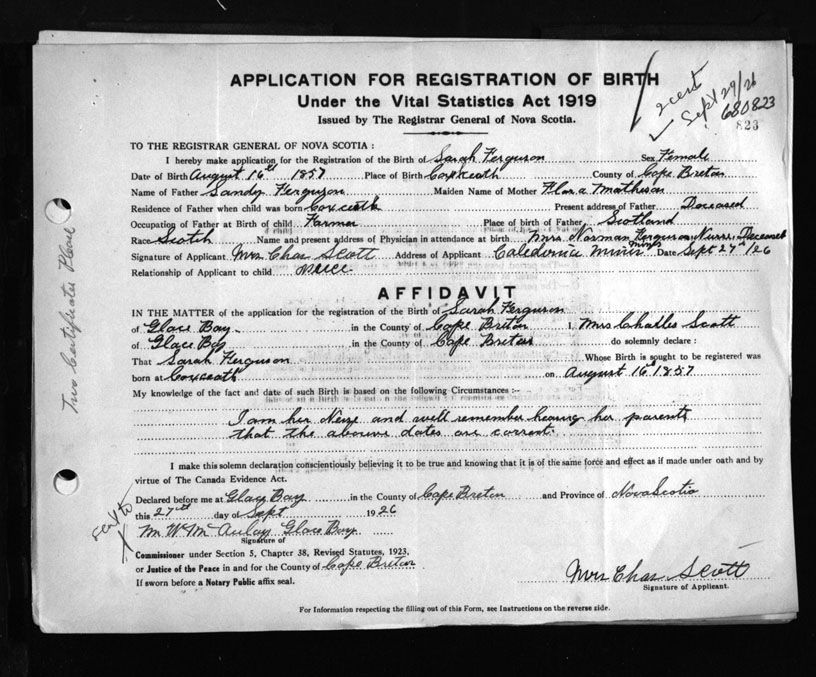 APPLICATION FOR REGISTRATION OF BIRTH
Under the Vital Statistics Act 1919
Issued by The Registrar General of Nova Scotia.
2 cert
Sept 29/26
680823
823
TO THE REGISTRAR GENERAL OF NOVA SCOTIA :
I hereby make application for the Registration of the Birth of Sarah Ferguson Sex Female
Date of Birth August 16th 1857 Place of Birth Coxheath County of Cape Breton
Name of Father Sandy Ferguson Maiden Name of Mother Matheson
Residence of Father when child was born Coxheath Present address of Father Deceased
Occupation of Father at Birth of child Farmer Place of birth of Father Scotland
Race Scotch Name and present address of Physician in attendance at birth Mrs Norman Ferguson Nurse, Deceased
Signature of Applicant Mrs Chas Scott Address of Applicant Caledonia Mines Date Sept 27th/26
Relationship of Applicant to child Neice
AFFIDAVIT
IN THE MATTER of the application for the registration of the Birth of Sarah Ferguson
of Glace Bay in the County of Cape Breton I, Mrs Charles Scott
of Glace Bay in the County of Cape Breton do solemnly declare :
That Sarah Ferguson Whose Birth is sought to be registered was
born at Coxheath on August 16th 1857
My knowledge of the fact and date of such Birth is based on the following Circumstances :-
I am her Neize and well remember hearing her parents
that the abouve dates are corrent.
I make this solemn declaration conscientiously believing it to be true and knowing that it is of the same force and effect as if made under oath and by
virtue of The Canada Evidence Act.
Declared before me at Glacy Bay in the County of Cape Breton and Province of Nova Scotia
this 27th day of Sept 1926
M McAulay Glace Bay
Signature of
Commissioner under Section 5, Chapter 38, Revised Statutes, 1923,
or Justice of the Peace in and for the County of Cape Breton
If sworn before a Notary Public affix seal.
Mrs Chas Scott
Signature of Applicant.
For Information respecting the filling out of this Form, see Instructions on the reverse side.
Two Certificates Please